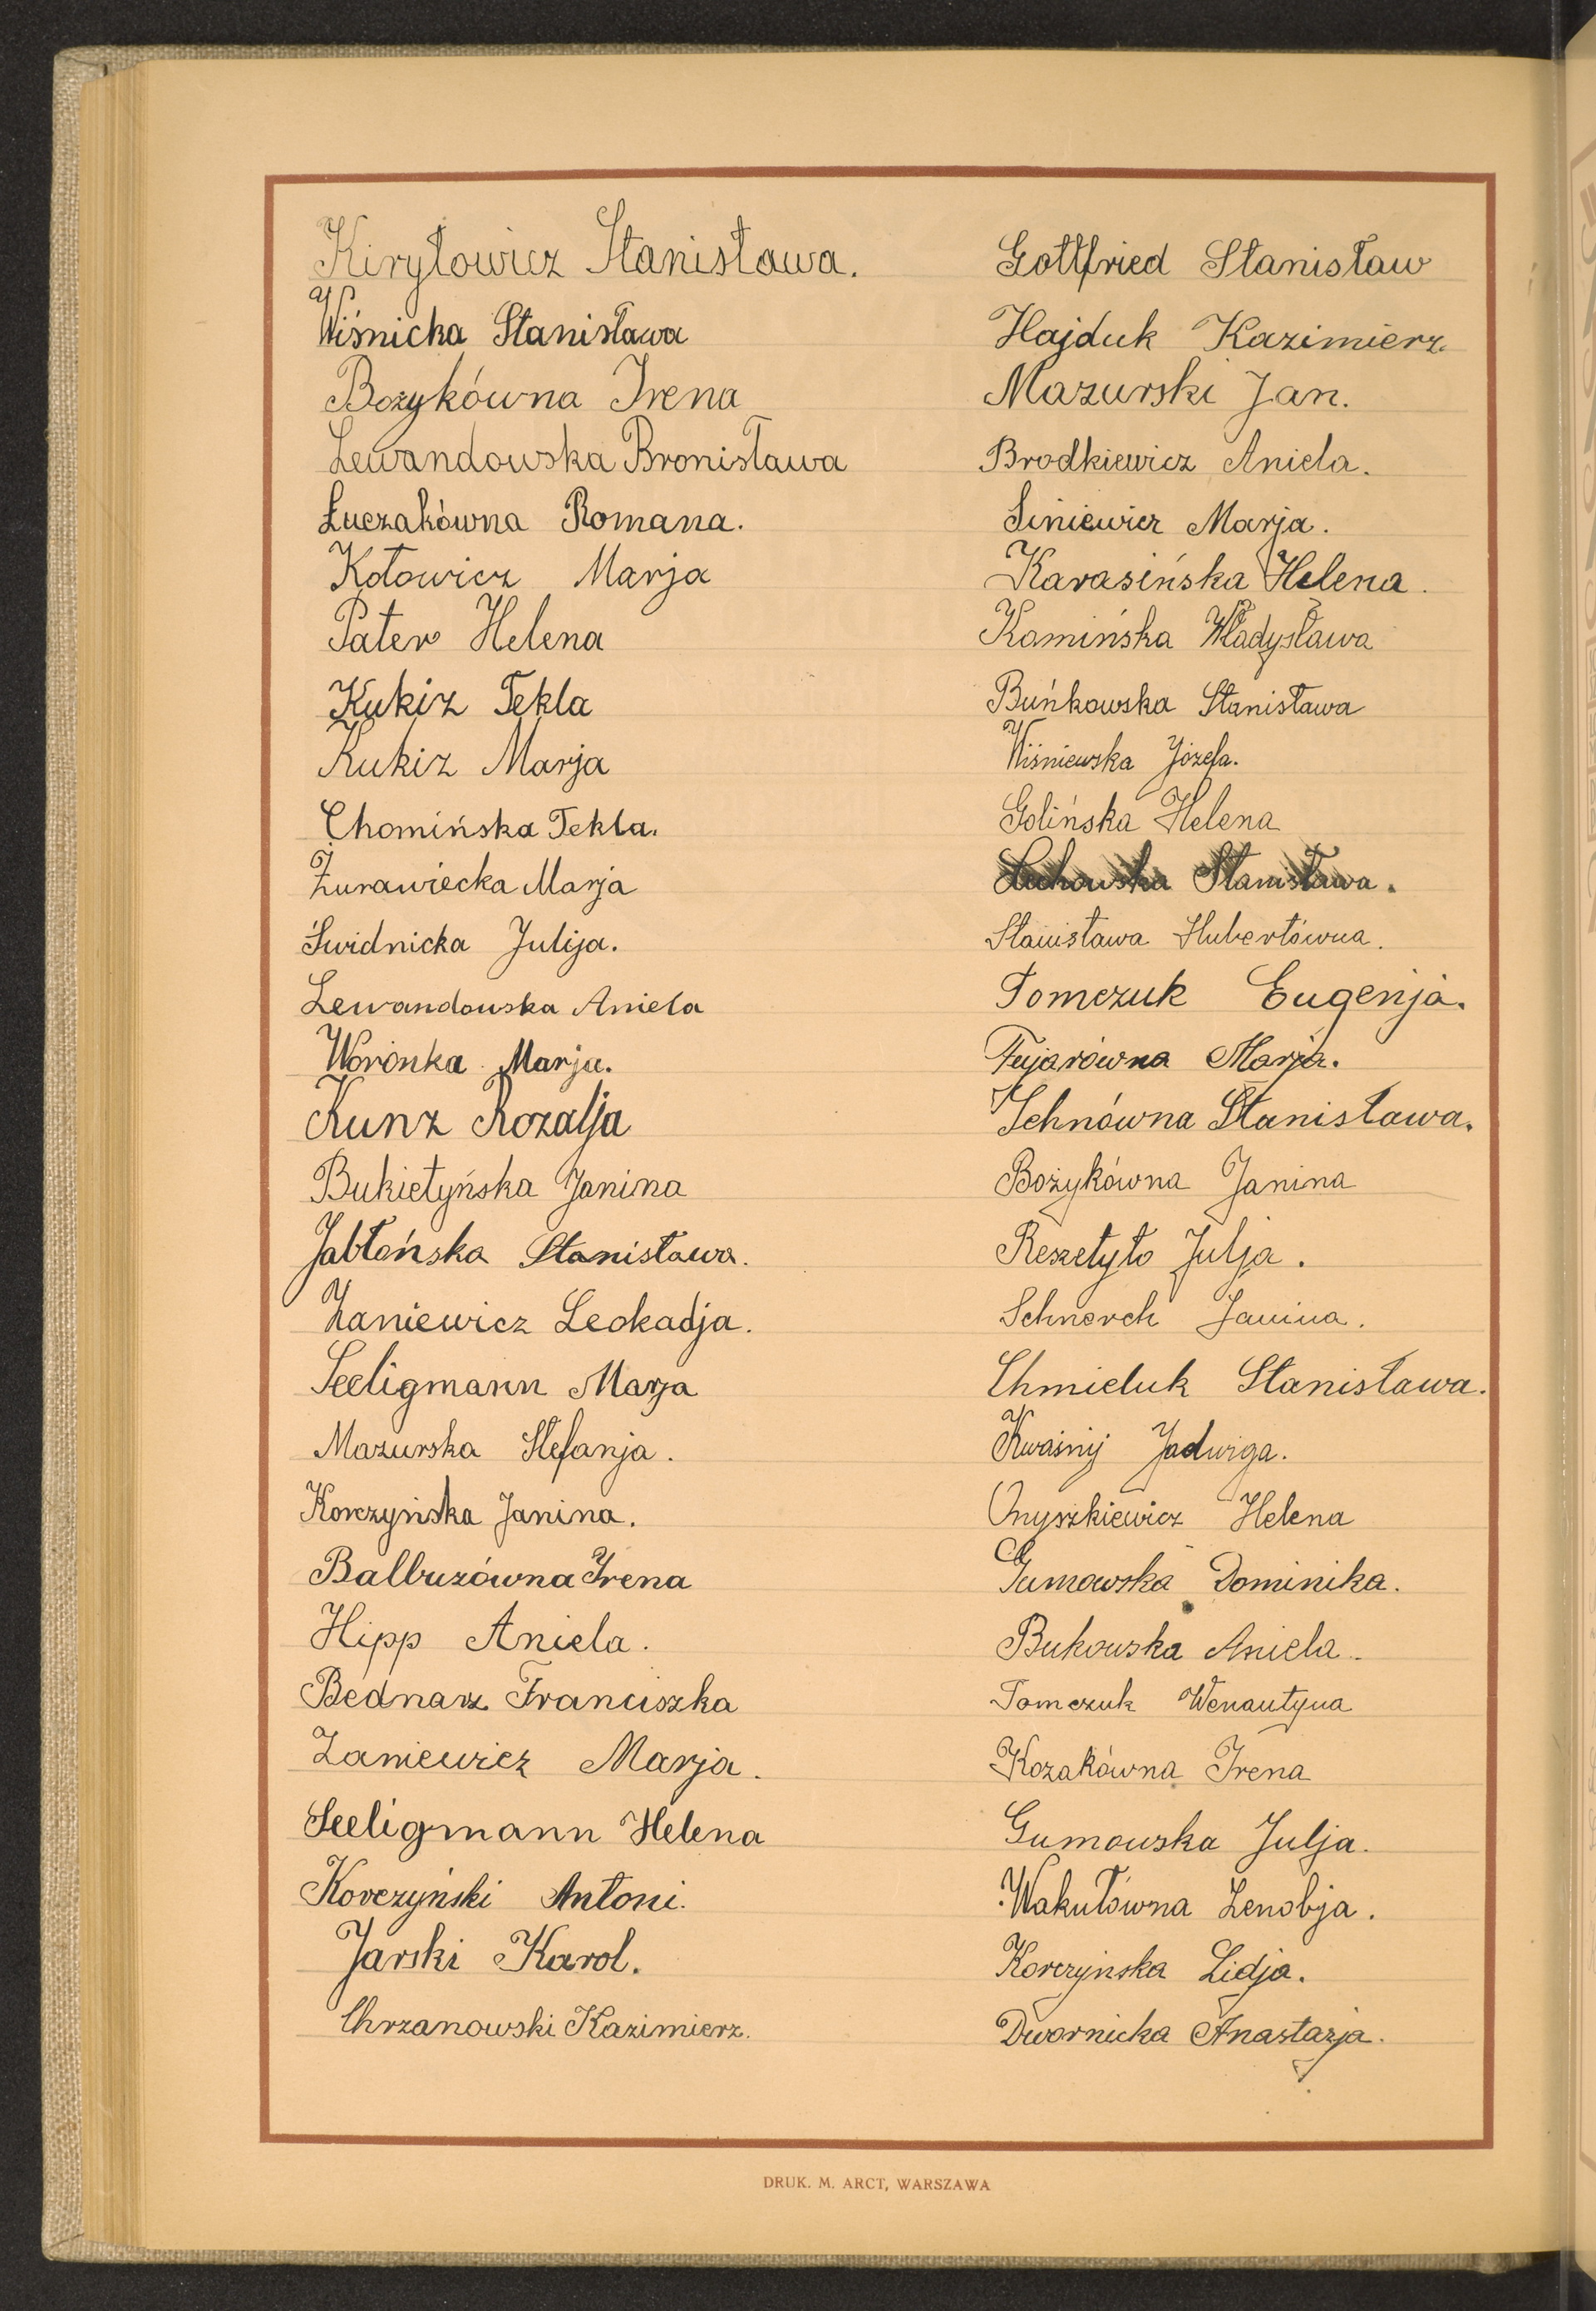 Kiryłowicz Stanisława.
Wiśnicka Stanisława
Bożykówna Irena
Lewandowska Bronisława
Łuczakówna Romana.
Kotowicz Marja
Pater Helena
Kukiz Tekla
Kukiz Marja
Chomińska Tekla.
Żurawiecka Marja
Świdnicka Julija.
Lewandowska Aniela
Woronka Marja.
Kunz Rozalja
Bukietyńska Janina
Jabłońska Stanisława.
Zaniewicz Leokadja.
Seeligmann Marja
Mazurska Stefanja.
Korczyńska Janina.
Balbuzówna Irena
Hipp Aniela.
Bednarz Franciszka
Zaniewicz Marja.
Seeligmann Helena
Korczyński Antoni.
Jarski Karol.
Chrzanowski Kazimierz.
Gottfried Stanisław
Hajduk Kazimierz.
Mazurski Jan.
Brodkiewicz Aniela.
Siniewicz Marja.
Karasińska Helena.
Kamińska Władysława
Buńkowska Stanisława
Wiśniewska Józefa.
Golińska Helena
Stanisława.
Stanisława Hubertówna.
Tomczuk Eugenja.
Fujarówna Marja.
Jehnówna Stanisława.
Bożykówna Janina
Reszetyło Julja.
Schnerch Janina.
Chmieluk Stanisława.
Kwaśnij Jadwiga.
Onyszkiewicz Helena
Gumowska Dominika.
Bukowska Aniela.
Tomczuk Wenautyna
Kozakówna Irena
Gumowska Julja.
Wakułówna Zenobja.
Korczyńska Lidja.
Dwornicka Anastazja.
DRUK. M. ARCT, WARSZAWA